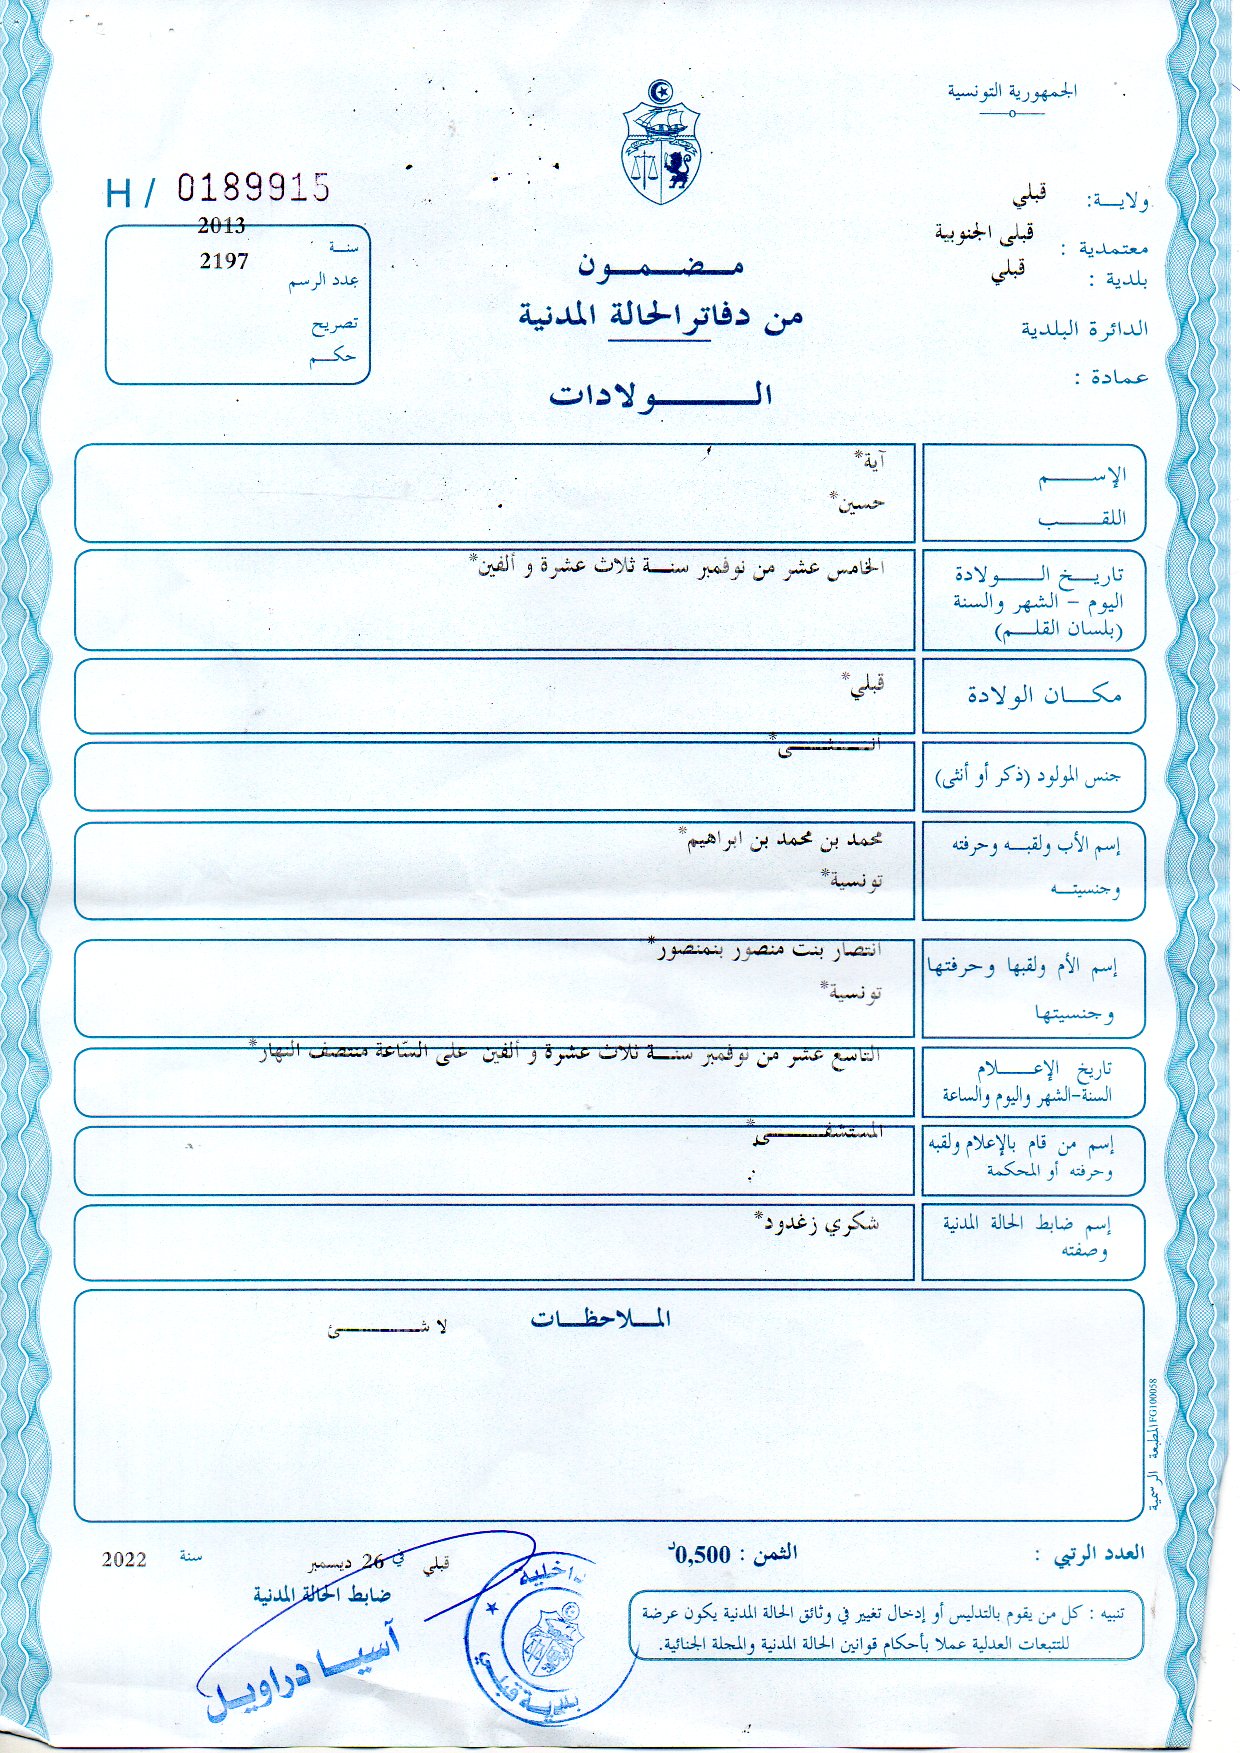 الجمهورية التونسية
H / 0189915
ولايـــة: قبلي
معتمدية : قبلى الجنوبية
بلدية : قبلي
الدائرة البلدية
عمادة :
سنــة 2013
عدد الرسم 2197
تصريح
حكــم
مــضــمــون
من دفاتر الحالة المدنية
الـــــــولادات
الإســـــم آية*
اللقـــــب حسين*
تاريــخ الــــــولادة الخامس عشر من نوفمبر سنــة ثلاث عشرة و ألفين*
اليوم – الشهر والسنة
(بلسان القلــم)
مكـــان الولادة قبلي*
جنس المولود (ذكر أو أنثى) أنــــثــــى*
إسم الأب ولقبــه وحرفته محمد بن محمد بن ابراهيم*
وجنسيتــه تونسية*
إسم الأم ولقبها وحرفتها انتصار بنت منصور بنمنصور*
وجنسيتها تونسية*
تاريخ الإعـــــلام التاسع عشر من نوفمبر سنــة ثلاث عشرة و ألفين على السّاعة منتصف النهار*
السنة-الشهر واليوم والساعة
إسم من قام بالإعلام ولقبه المستشفـــــى*
وحرفته أو المحكمة
إسم ضابط الحالة المدنية شكري زغدود*
وصفته
المــلاحظــات
لا شـــــــئ
المطبعة الرسمية FG100058
العدد الرتبي :
الثمن : 0,500د
قبلي في 26 ديسمبر سنة 2022
ضابط الحالة المدنية
آسيــا دراويــل
داخلية
بلدية قبلي
تنبيه : كل من يقوم بالتدليس أو إدخال تغيير في وثائق الحالة المدنية يكون عرضة
للتتبعات العدلية عملا بأحكام قوانين الحالة المدنية والمجلة الجنائية.